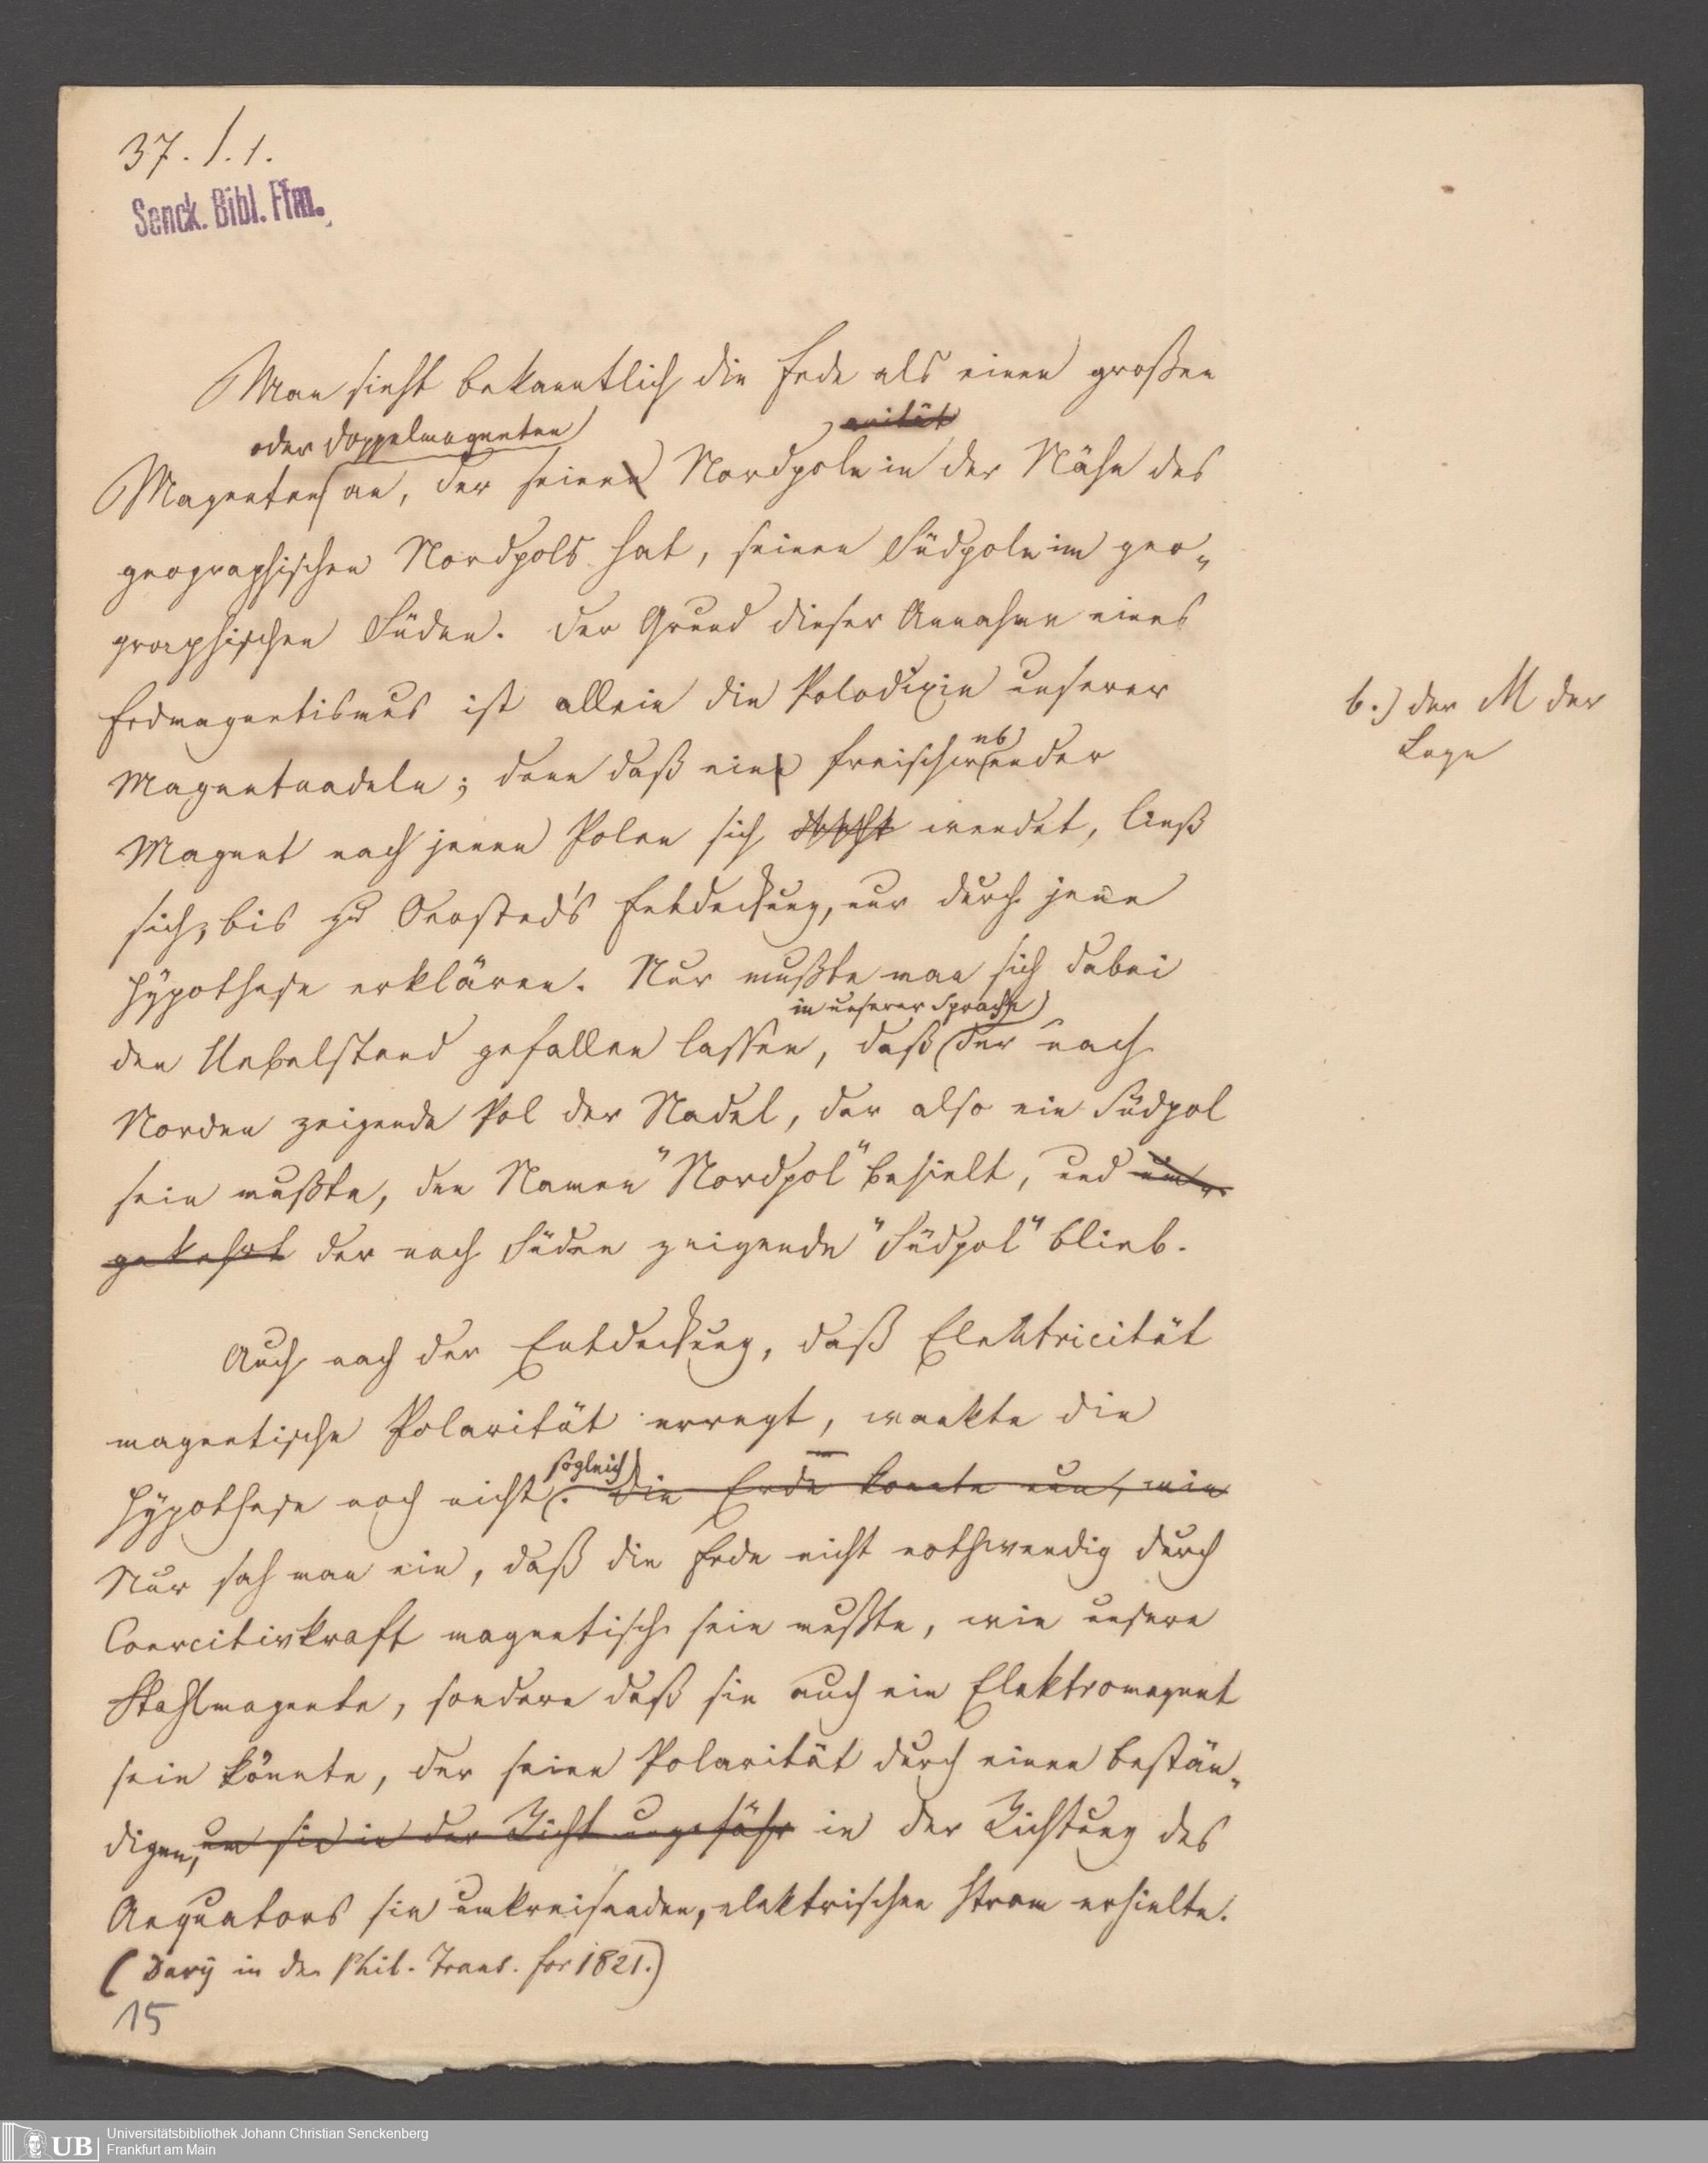 37. /. 1.
Senck. Bibl. Ffm.
Man sieht bekanntlich die Erde als einen großen
oder Doppelmagneten
arität
Magneten an, der seinen Nordpol in der Nähe des
geographischen Nordpols hat, seinen Südpol im geo-
graphischen Süden. Der Grund dieser Annahme eines
Erdmagnetismus ist allein die Polodixie unserer
b.) der M der
Lage
eb
Magnetnadeln; denn daß ein freischwender
Magnet nach jenen Polen sich dreht wendet, ließ
sich, bis zu Oersted's Entdeckung, nur durch jene
Hypothese erklären. Nur mußte man sich dabei
in unserer Sprache
den Uebelstand gefallen lassen, daß der nach
Norden zeigende Pol der Nadel, der also ein Südpol
sein mußte, den Namen "Nordpol" behielt, und um-
gekehrt der nach Süden zeigende "Südpol" blieb.
Auch nach der Entdeckung, daß Elektricität
magnetische Polarität erregt, wankte die
sogleich
Hypothese noch nicht. Die Erde konnte nun, wie
Nur sah man ein, daß die Erde nicht nothwendig durch
Coercitivkraft magnetisch sein mußte, wie unsere
Stahlmagnete, sondern daß sie auch ein Elektromagnet
sein könnte, der seine Polarität durch einen bestän-
digen, um sie in der Richt ungefähr in der Richtung des
Aequators sie umkreisenden, elektrischen Strom erhielte.
(Davy in den Phil. Trans. for 1821.)
15
UB
Universitätsbibliothek Johann Christian Senckenberg
Frankfurt am Main